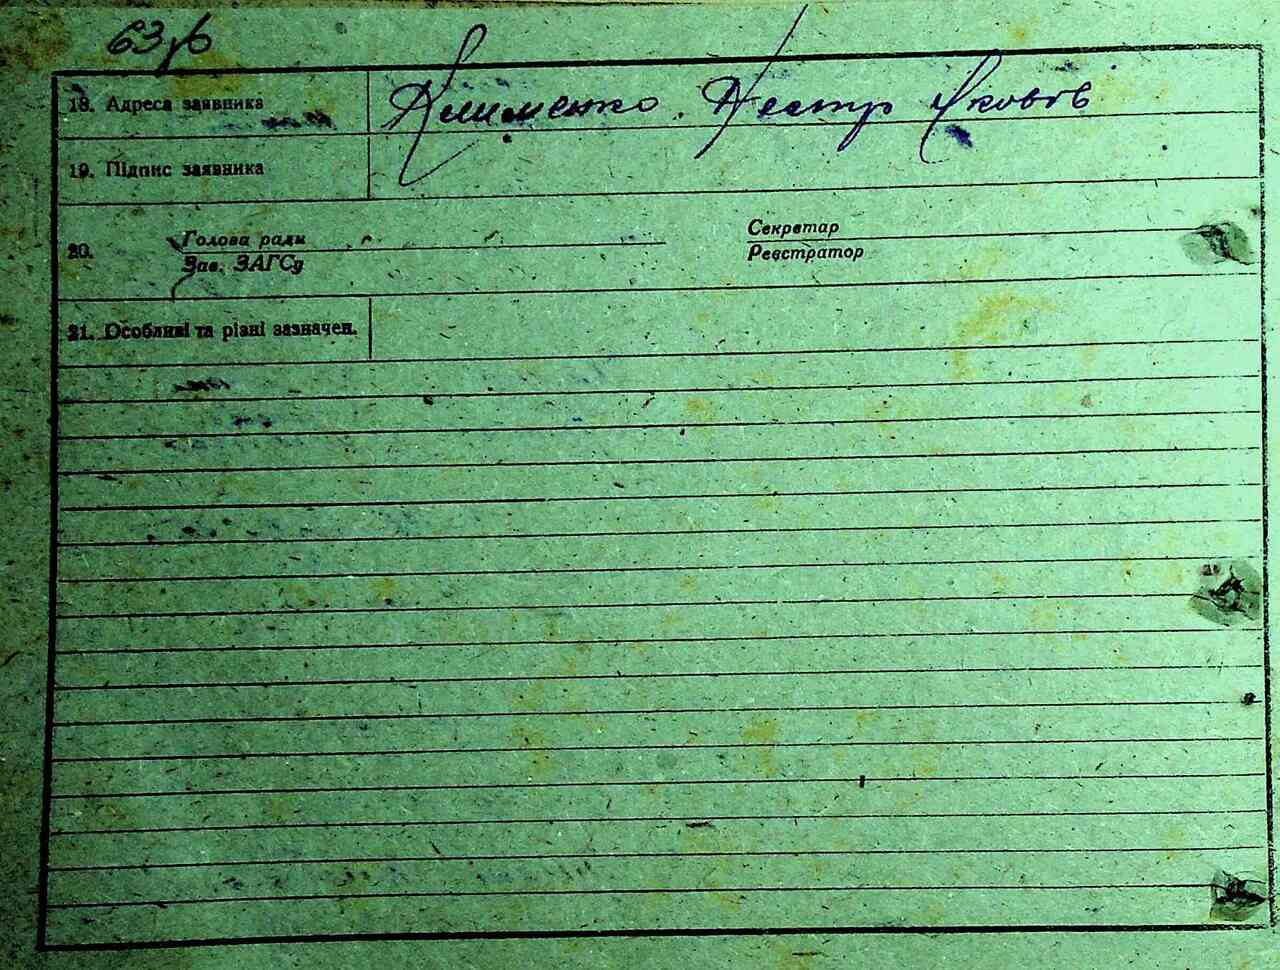 63зв
18. Адреса заявника Клименко Нестр Яковів
19. Підпис заявника
20. Голова ради Секретар
Зав. ЗАГСу Реєстратор
21. Особливі та різні зазначен.